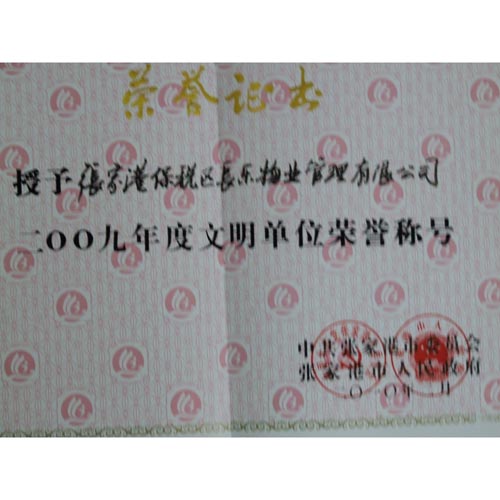 荣誉证书
授予張家港保税区長乐物业管理有限公司
二〇〇九年度文明单位荣誉称号
中共张家港市委员会
张家港市人民政府